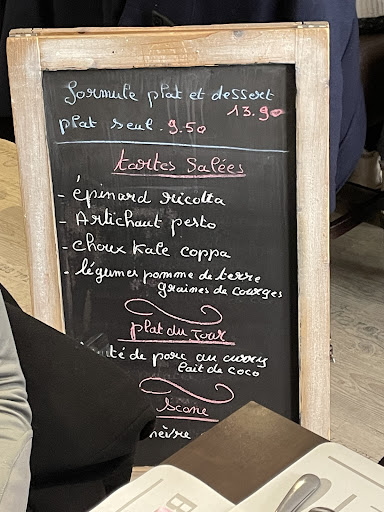 formule plat et dessert
13.90
plat seul. 9.50
tartes Salées
- épinard ricotta
- Artichaut pesto
- choux Kale coppa
- légumes pomme de terre
graines de courges
plat du Jour
de porc au curry
lait de coco
Scone